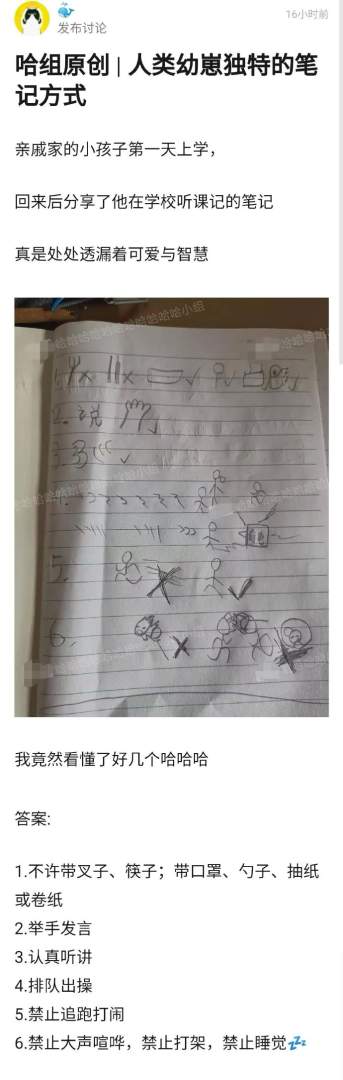 16小时前
发布讨论
哈组原创 | 人类幼崽独特的笔
记方式
亲戚家的小孩子第一天上学，
回来后分享了他在学校听课记的笔记
真是处处透漏着可爱与智慧
1.
2. 说
3.
5.
6.
我竟然看懂了好几个哈哈哈
答案:
1.不许带叉子、筷子；带口罩、勺子、抽纸
或卷纸
2.举手发言
3.认真听讲
4.排队出操
5.禁止追跑打闹
6.禁止大声喧哗，禁止打架，禁止睡觉💤